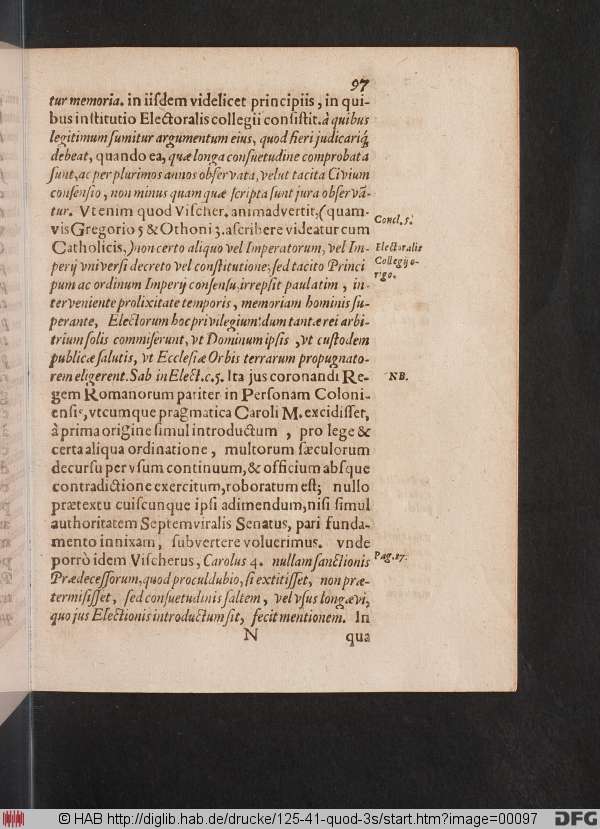 97
tur memoria. in iisdem videlicet principiis, in qui-
bus institutio Electoralis collegii consistit. à quibus
legitimum sumitur argumentum eius, quod fieri judicariq́
debeat, quando ea, quæ longa consuetudine comprobata
sunt, ac per plurimos annos observata, velut tacita Civium
consensio, non minus quam quæ scripta sunt jura observā-
tur. Vt enim quod Vischer. animadvertit, (quam-
vis Gregorio 5 & Othoni 3. ascribere videatur cum
Concl. 5.
Catholicis,) non certo aliquo vel Imperatorum, vel Im-
Electoralis
perij vniversi decreto vel constitutione, sed tacito Princi
Collegij o-
pum ac ordinum Imperij consensu, irrepsit paulatim, in-
rigo.
terveniente prolixitate temporis, memoriam hominis su-
perante, Electorum hoc privilegium: dum tantæ rei arbi-
trium solis commiserunt, vt Dominum ipsis, vt custodem
publicæ salutis, vt Ecclesiæ Orbis terrarum propugnato-
rem eligerent. Sab in Elect. c. 5. Ita jus coronandi Re-
NB.
gem Romanorum pariter in Personam Coloni-
ensis, vtcumque pragmatica Caroli M. excidisset,
à prima origine simul introductum, pro lege &
certa aliqua ordinatione, multorum sæculorum
decursu per vsum continuum, & officium absque
contradictione exercitum, roboratum est; nullo
prætextu cuiscunque ipsi adimendum, nisi simul
authoritatem Septemviralis Senatus, pari funda-
mento innixam, subvertere voluerimus. vnde
porrò idem Vischerus, Carolus 4. nullam sanctionis
Pag. 17.
Prædecessorum, quod proculdubio, si extitisset, non præ-
termisisset, sed consuetudinis saltem, vel vsus longævi,
quo jus Electionis introductum sit, fecit mentionem. In
N qua
© HAB http://diglib.hab.de/drucke/125-41-quod-3s/start.htm?image=00097
DFG